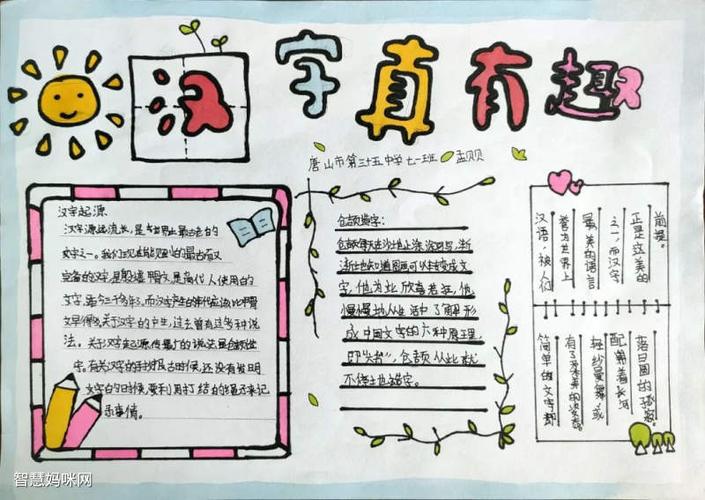 汉字真有趣
唐山市第三十五中学七一班 孟贝贝
汉字起源
汉字源起流长,是世界上最古老的
文字之一。我们现在能见到的最古而又
完备的汉字,是殷墟甲骨文,是商代人使用的
文字,距今三千多年,而汉字产生的年代应该比甲骨
文早得多,关于汉字的产生,过去曾有过多种说
法。关于汉字起源,传最广的说法是仓颉造
字。有关汉字的 古时候,还没有发明
文字的时候,要利用打结的绳子来记
录事情。
仓颉造字:
仓颉每天在沙地上涂涂写写,渐
渐他知道图画可以转变成文
字,他为此欣喜若狂,他
慢慢地从生活中了解形
成中国文字的六种原理,
即"六书",仓颉从此就
不停地造字。
前提。
正是立美的
之一,而汉字
最美的语言
誉为世界上
汉语,被人们
落日圆的
配朝着长河
轻纱曼舞,或
有了 美的姿态。
简单的文字都
智慧妈咪网